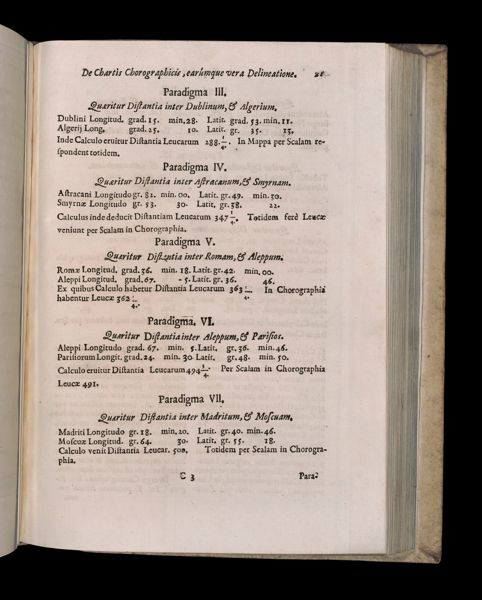 De Chartis Chorographicis, earumque vera Delineatione. 21
Paradigma III.
Quæritur Distantia inter Dublinum, & Algerium.
Dublini Longitud. grad. 15. min. 28. Latit. grad. 53. min. 11.
Algerij Long. grad. 25. 10. Latit. gr. 35. 15.
Inde Calculo eruitur Distantia Leucarum 288. 1/4. In Mappa per Scalam re-
spondent totidem.
Paradigma IV.
Quæritur Distantia inter Astracanum, & Smyrnam.
Astracani Longitudo gr. 82. min. 00. Latit. gr. 49. min. 50.
Smyrnæ Longitudo gr. 53. 30. Latit. gr. 38. 22.
Calculus inde deducit Distantiam Leucarum 347 1/4. Totidem ferè Leucæ
veniunt per Scalam in Chorographia.
Paradigma V.
Quæritur Distantia inter Romam, & Aleppum.
Romæ Longitud. grad. 36. min. 18. Latit. gr. 42. min. 00.
Aleppi Longitud. grad. 67. 5. Latit. gr. 36. 46.
Ex quibus Calculo habetur Distantia Leucarum 363 1/4. In Chorographia
habentur Leucæ 362 1/4.
Paradigma. VI.
Quæritur Distantia inter Aleppum, & Parisios.
Aleppi Longitudo grad. 67. min. 5. Latit. gr. 36. min. 46.
Parisiorum Longit. grad. 24. min. 30. Latit. gr. 48. min. 50.
Calculo eruitur Distantia Leucarum 494 1/4. Per Scalam in Chorographia
Leucæ 491.
Paradigma VII.
Quæritur Distantia inter Madritum, & Moscuam.
Madriti Longitudo gr. 18. min. 20. Latit. gr. 40. min. 46.
Moscuæ Longitud. gr. 64. 30. Latit. gr. 55. 18.
Calculo venit Distantia Leucar. 508. Totidem per Scalam in Chorogra-
phia.
C 3 Para-